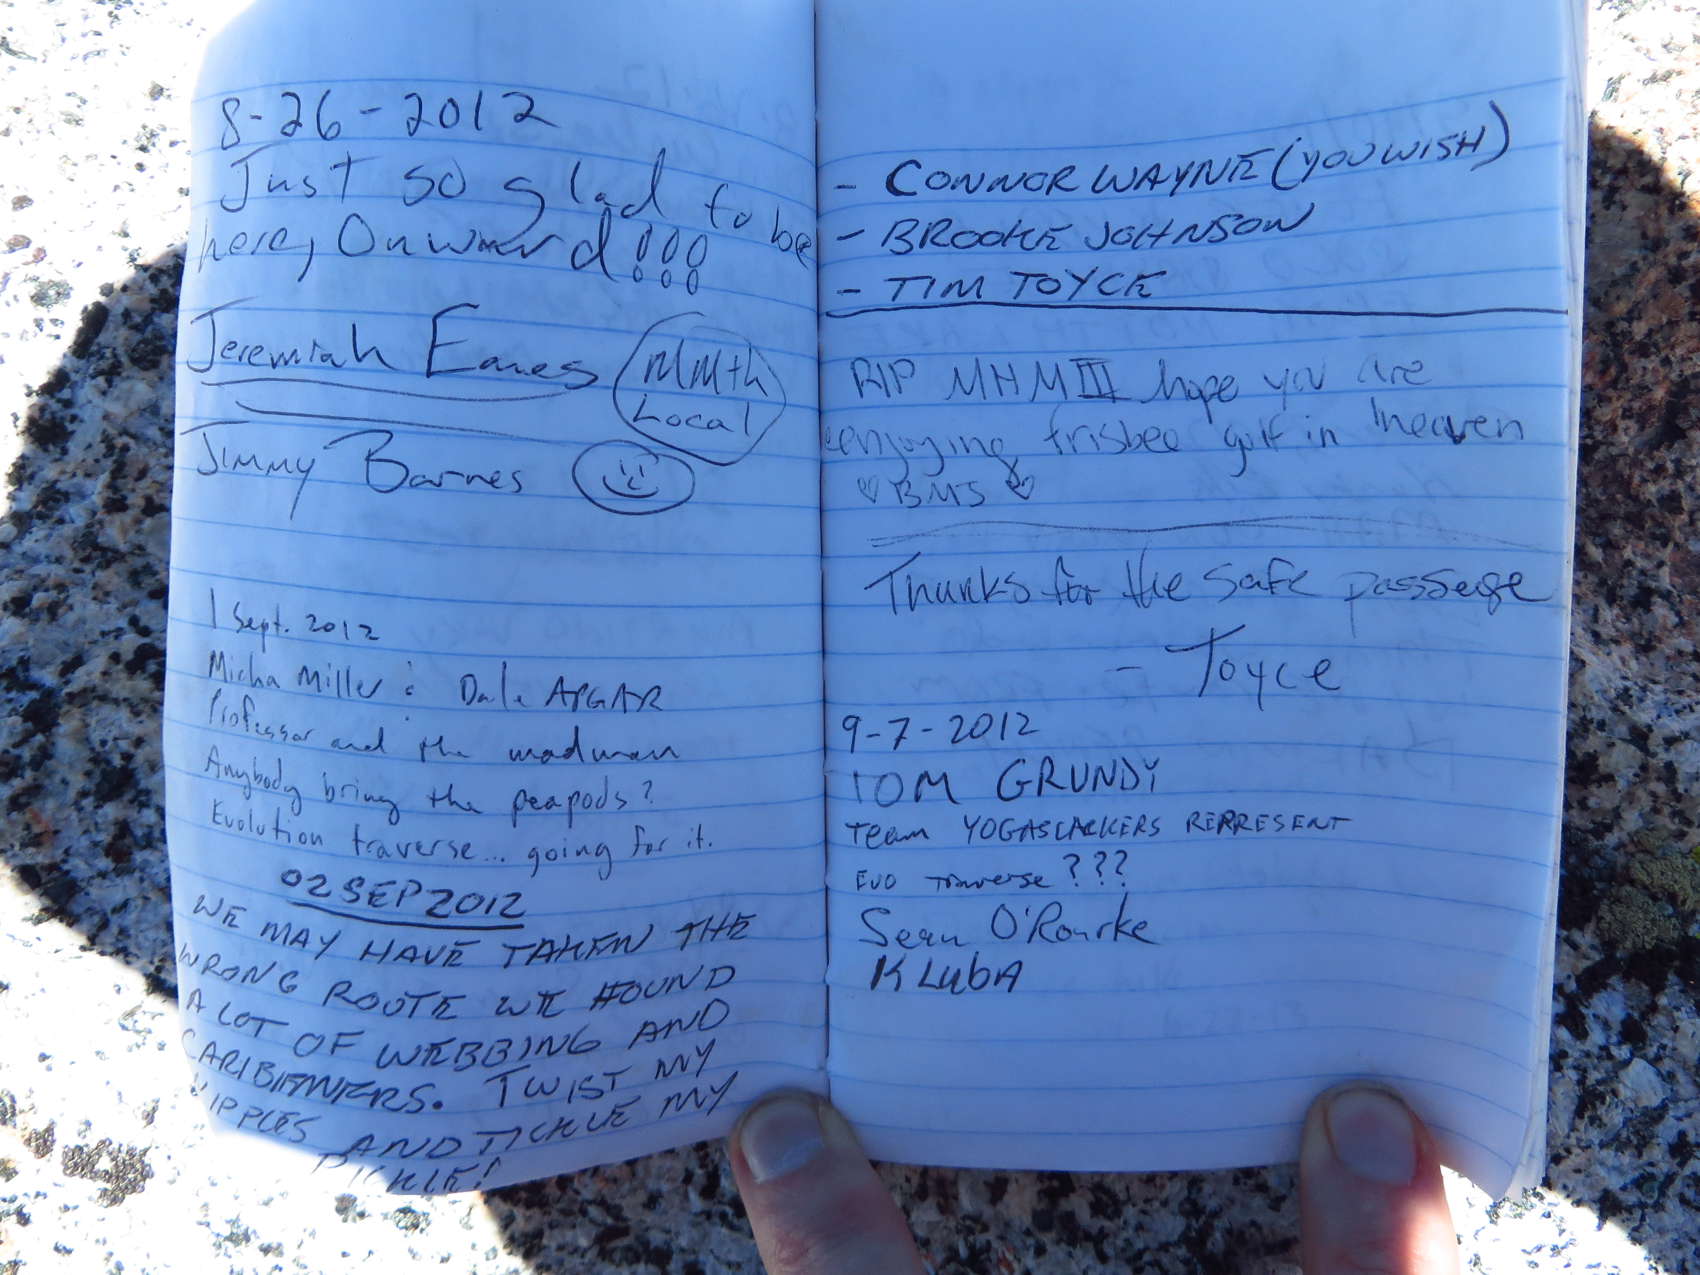 8-26-2012
Just so glad to be
here, Onward!!!
Jeremiah Eanes
MMth
Local
Jimmy Barnes
1 Sept. 2012
Micha Miller & Dale APGAR
Professor and the madman
Anybody bring the peapods?
Evolution traverse... going for it.
02 SEP 2012
WE MAY HAVE TAKEN THE
WRONG ROUTE WE FOUND
A LOT OF WEBBING AND
CARIBIENERS. TWIST MY
NIPPLES AND TICKLE MY
PICKLE!
- CONNOR WAYNE (YOU WISH)
- BROOKE JOHNSON
- TIM TOYCE
RIP MHM III hope you are
enjoying frisbee golf in heaven
♡ BMJ ♡
Thanks for the safe passage
- Toyce
9-7-2012
TOM GRUNDY
Team YOGASLACKERS REPRESENT
EVO Traverse???
Sean O'Rourke
KLubA